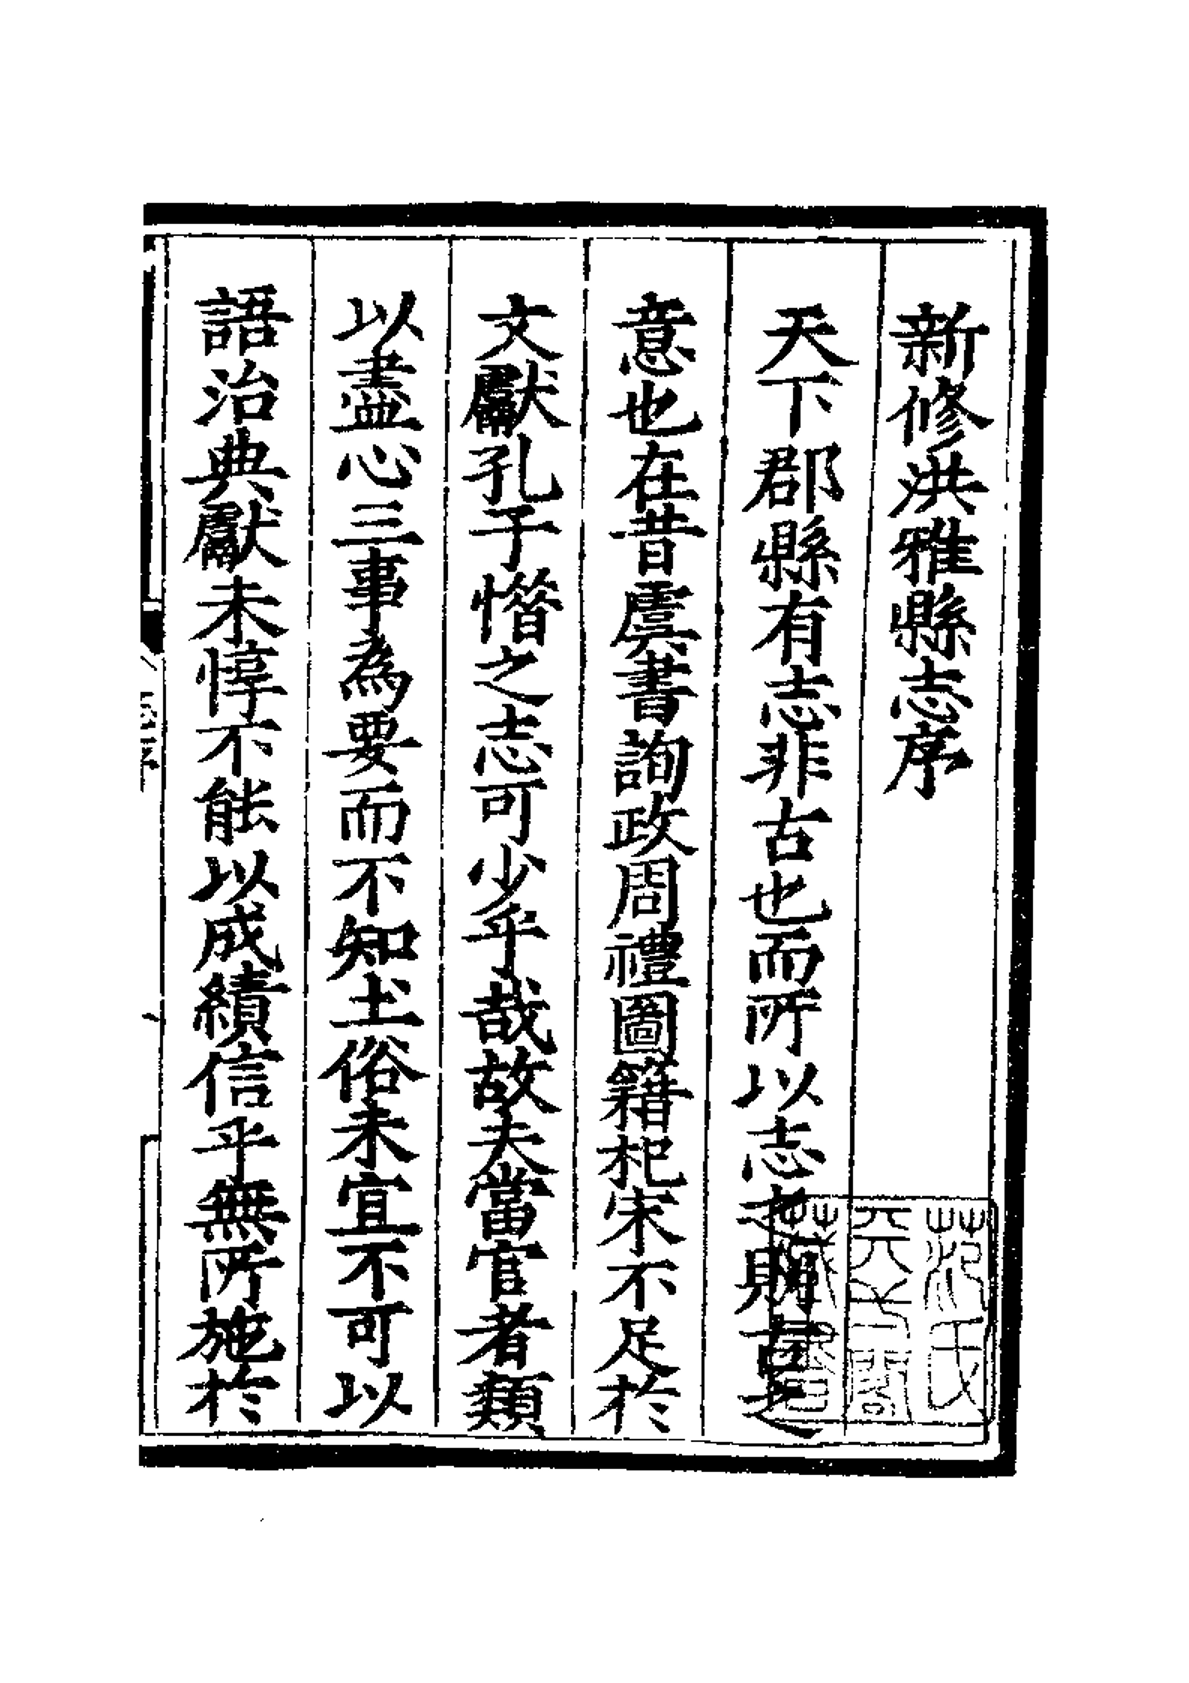 新修洪雅縣志序
天下郡縣有志非古也而所以志之則古之
意也在昔虞書詢政周禮圖籍杞宋不足於
文獻孔子憯之志可少乎哉故夫當官者類
以盡心三事為要而不知土俗未宜不可以
語治典獻未惇不能以成績信乎無所施於
范氏天一閣藏書